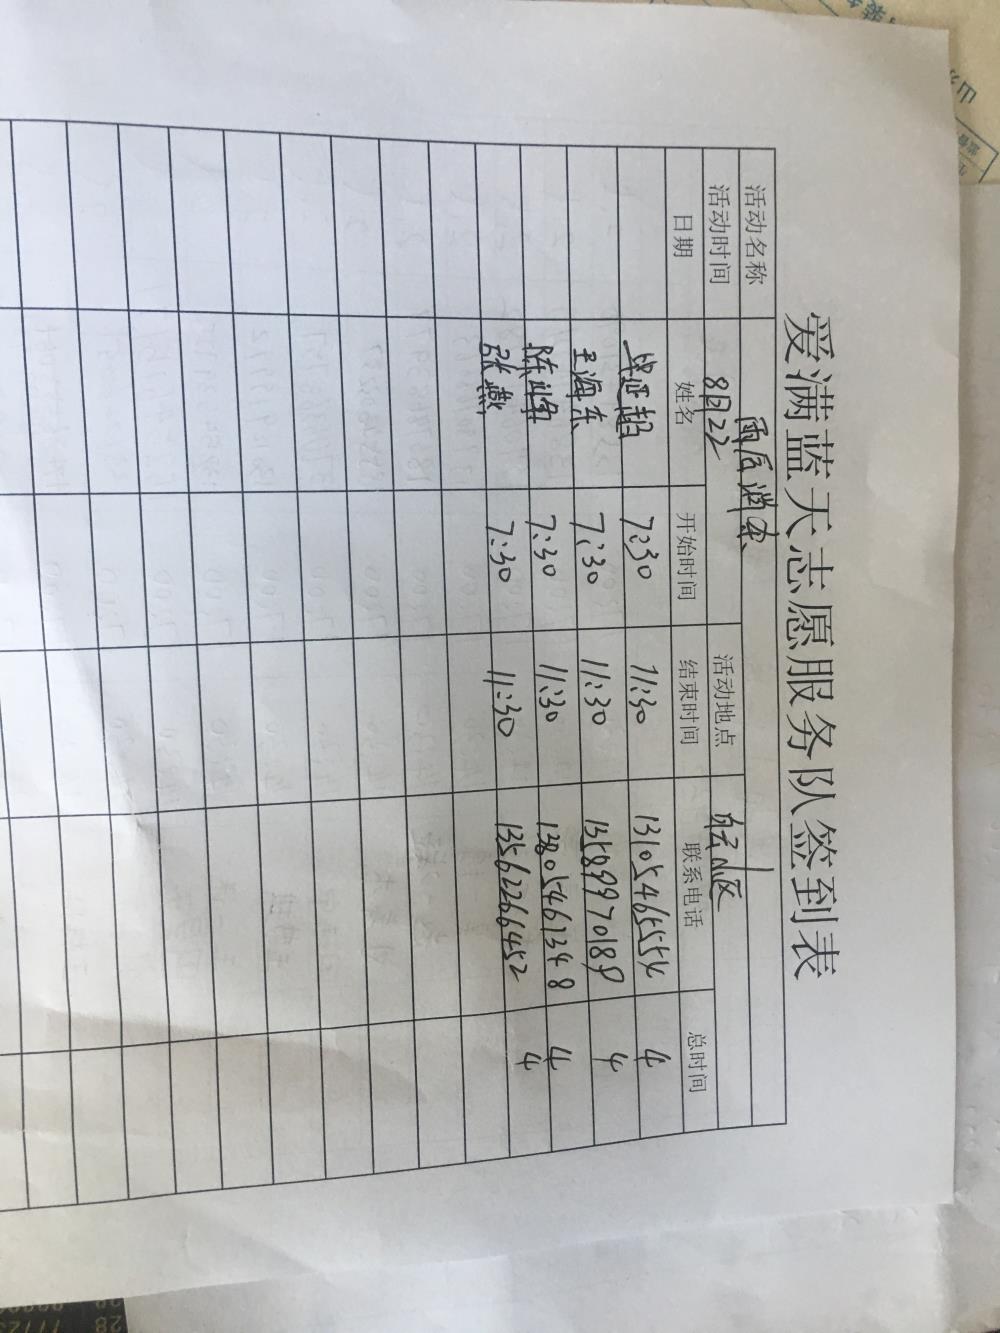 爱满蓝天志愿服务队签到表
活动名称 雨后消杀
活动时间 8月22 活动地点 小区
日期 姓名 开始时间 结束时间 联系电话 总时间
毕延超 7:30 11:30 13105465554 4
王海东 7:30 11:30 13589970189 4
陈 7:30 11:30 13805461348 4
张燕 7:30 11:30 13562266452 4